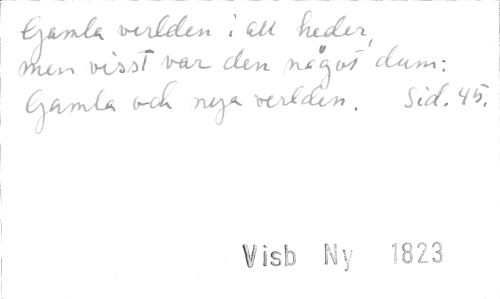 Gamla verlden i all heder,
men visst var den något dum:
Gamla och nya verlden. Sid. 45.
Visb Ny 1823